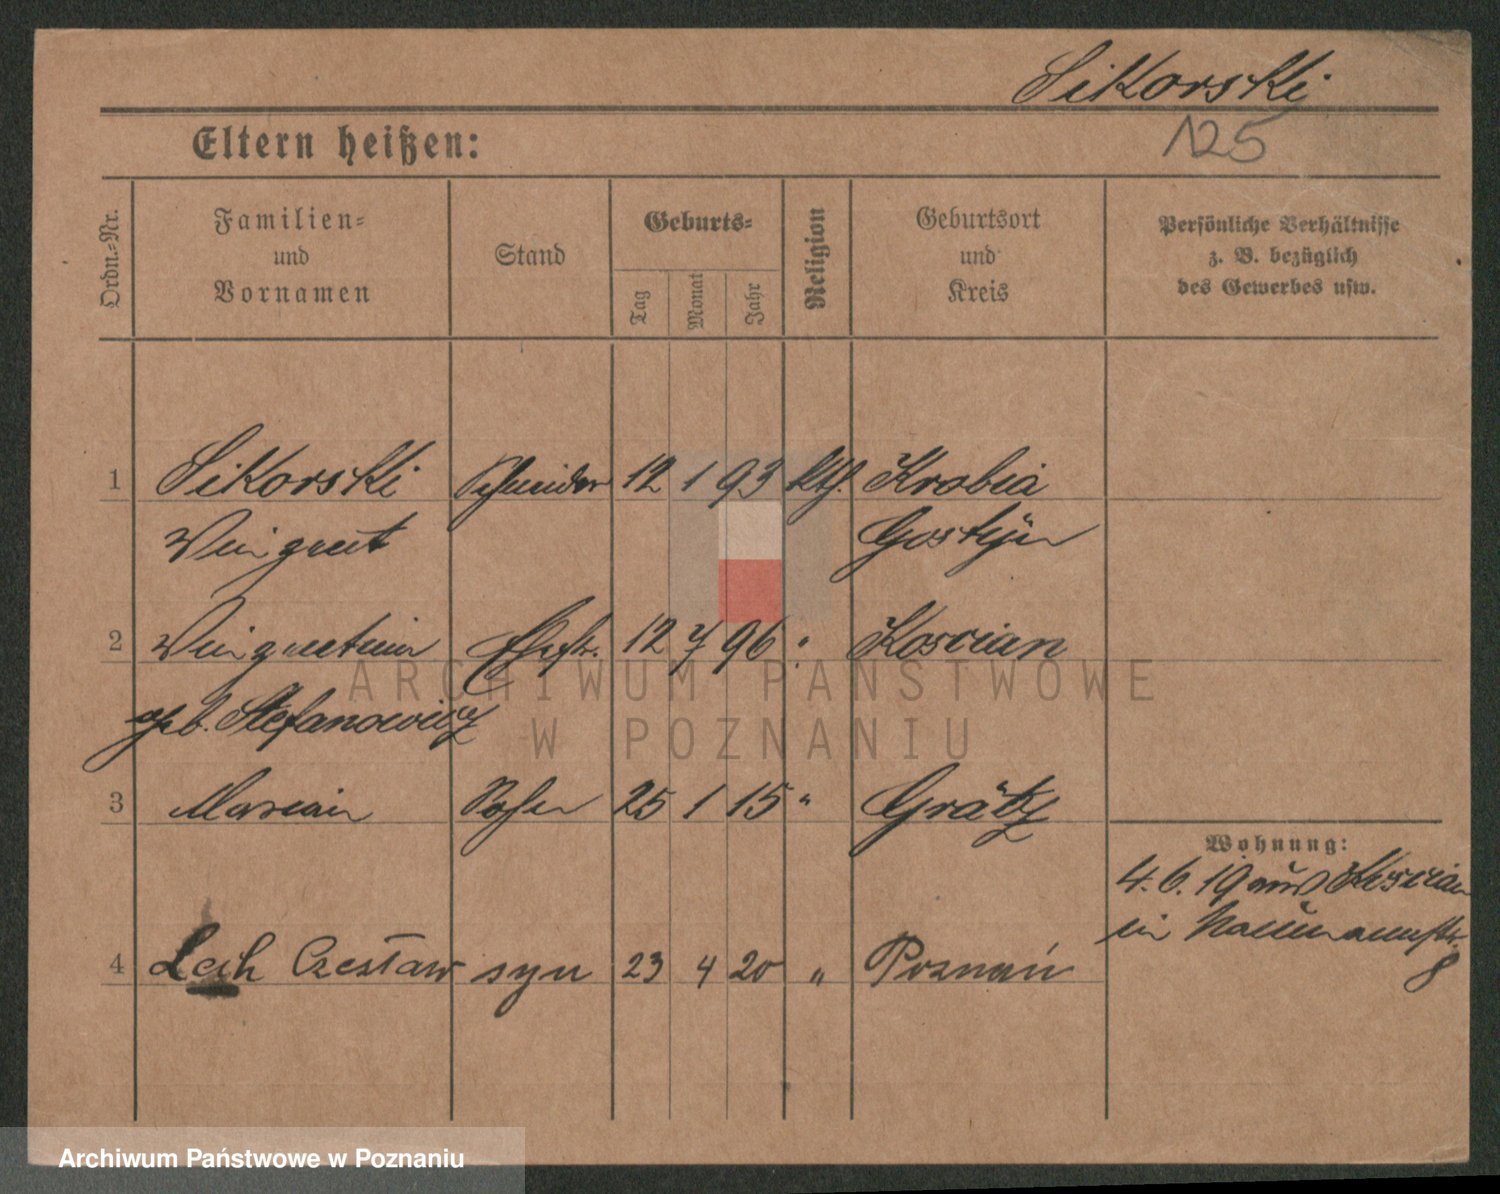 Sikorski
125
Eltern heißen:
Ordn.-Nr.
Familien-
und
Vornamen
Stand
Geburts-
Tag
Monat
Jahr
Religion
Geburtsort
und
Kreis
Persönliche Verhältnisse
z. B. bezüglich
des Gewerbes usw.
1 Sikorski Schneider 12 1 93 kth. Krobia
Gostyn
2 Ehefr. 12 7 96 " Koscian
geb. Stefanowicz
3 Marian Sohn 25 1 15 " Grätz
Wohnung:
4. 6. 19 aus Koscian
in Naumannstr.
8
4 Lech Czesław syn 23 4 20 " Poznań
ARCHIWUM PAŃSTWOWE
W POZNANIU
Archiwum Państwowe w Poznaniu